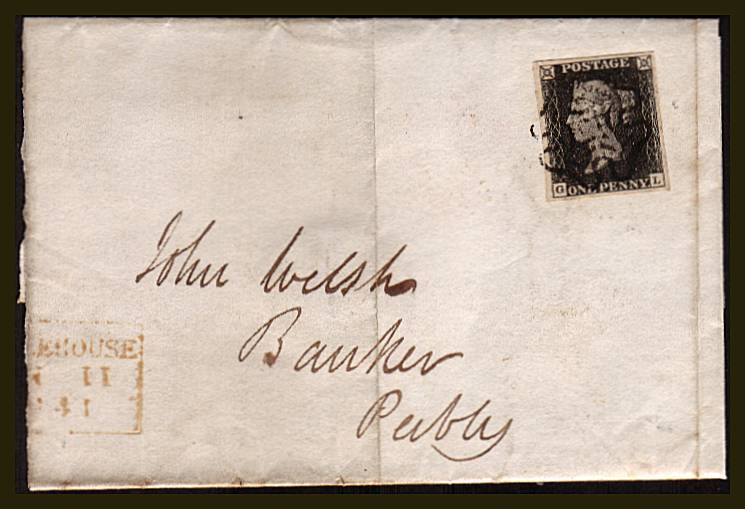 POSTAGE
G ONE PENNY L
John Welsh
Banker
Peebles
EHOUSE
11
41